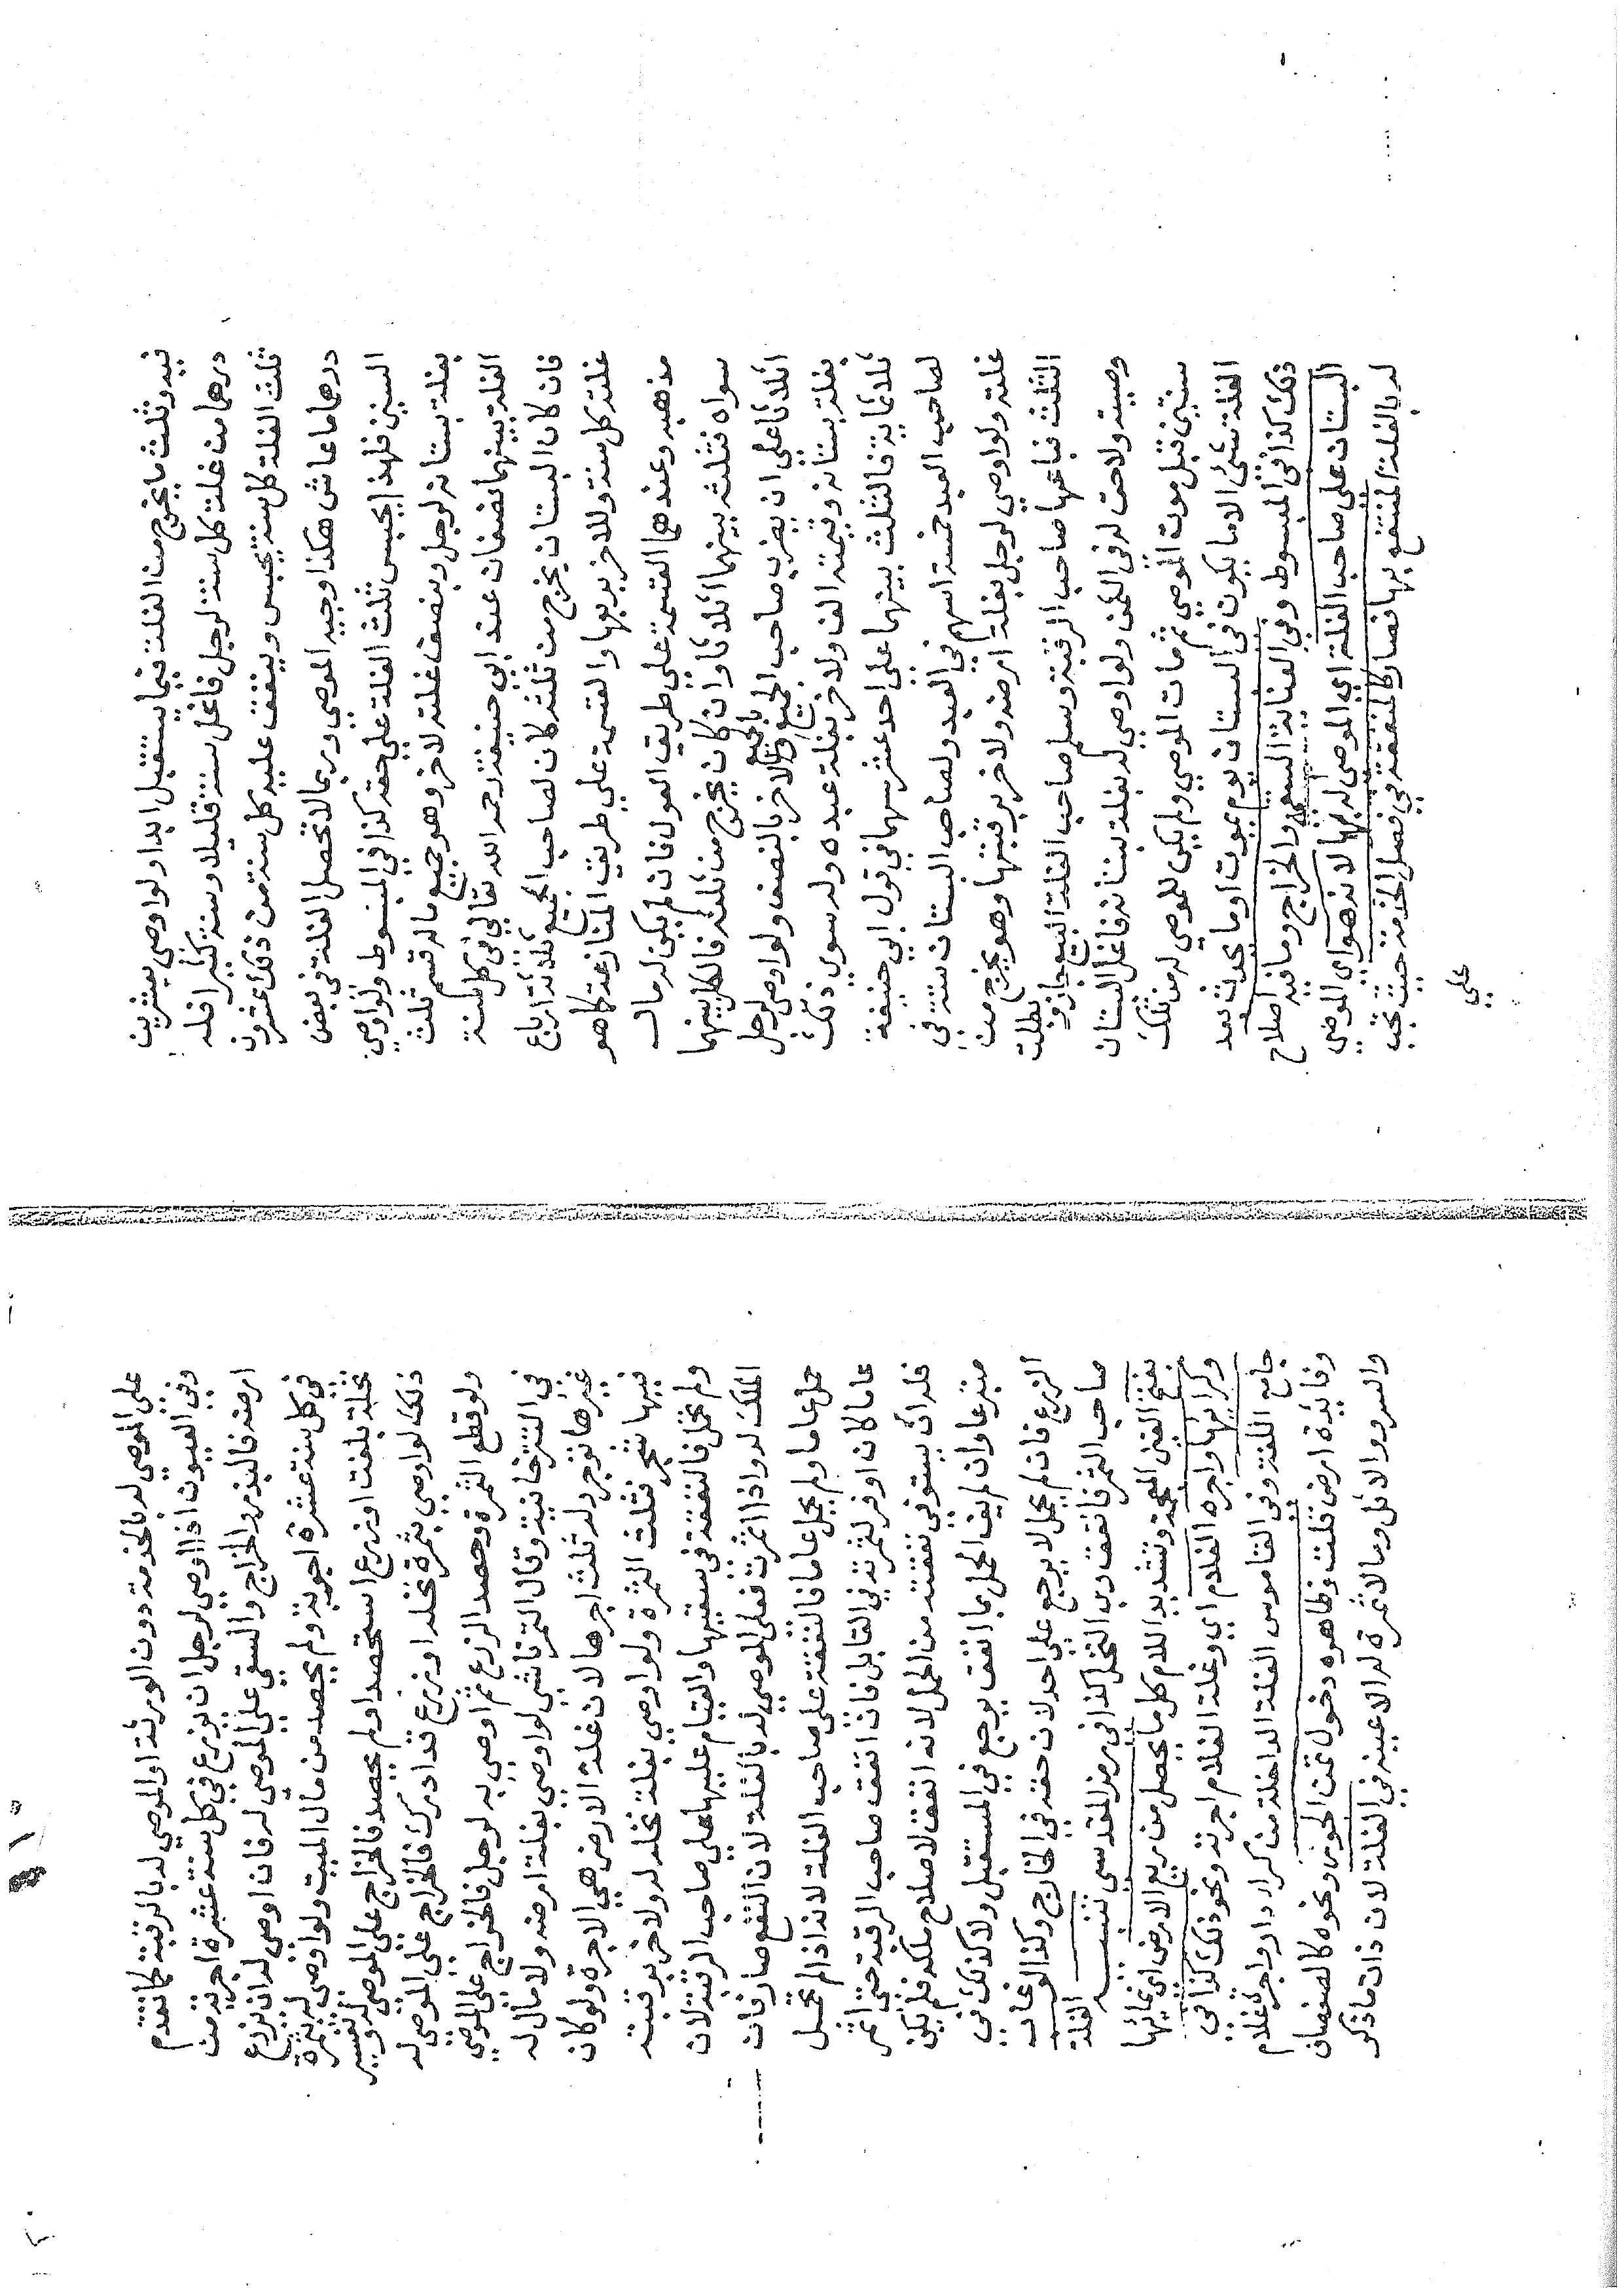 فيه وثلث ما يخرج من الغلة فيما يستقبل ابدا ولو اوصى بعشرين
درهما من غلته كل سنة لرجل فاغل سنة قليلا وسنة كثيرا فله
ثلث الغلة كل سنة يحبس وينفق عليه كل سنة من ذلك عشرون
درهما ما عاش هكذا وجبه الموصي وربما لا تحصل الغلة في بعض
السنين فلهذا يحبس ثلث الغلة على حقه كذا في المبسوط ولو اوصي
بغلة بستانه لرجل وبنصف غلته لاخر وهو جميع ماله قسم ثلث
الغلة بينهما نصفان عند ابي حنيفة رحمه الله تعالى في كل سنة
فان كان البستان يخرج من ثلثه كان لصاحب الجميع ثلاثة ارباع
غلته كل سنة وللاخر ربعها والقسمة على طريق المنازعة كما هو
مذهبه وعندهما القسمة على طريق العول فان لم يكن له مال
سواه فثلثه بينهما اثلاثا وان كان يخرج من ثلثه فالكل بينهما
اثلاثا على ان يضرب صاحب الجميع بالجميع والاخر بالنصف ولو اوصى لرجل
بغلة بستانه وقيمته الف ولاخر بغلة عبده وله سوى ذلك
ثلاثماية فالثلث بينهما على احد عشر سهما في قول ابي حنيفة
لصاحب العبد خمسة اسهم في العبد ولصاحب البستان ستة في
غلته ولو اوصي لرجل بغلة ارضه ولاخر برقبتها وهو يخرج من
الثلث فباعها صاحب الرقبة وسلم صاحب الغلة البيع جاز وبطلت
وصيته ولا حق له في الثمن ولو اوصي له بغلة بستانه فاغل البستان
سنتين قبل موت الموصي ثم مات الموصي ولم يكن للموصي له من تلك
الغلة شئ الا ما يكون في البستان يوم يموت او ما يحدث بعد
ذلك كذا في المبسوط وفي العناية السقي والخراج وما فيه اصلاح
البستان على صاحب الغلة اي الموصى له بها لانه هو اي الموصى
له بالغلة المنتفع بها فصار كالنفقة في فصل الخدمة حيث تجب
على
على الموصي له بالخدمة دون الورثة او الموصي له بالرقبة كما تقدم
وفي العيون اذا اوصي لرجل ان يزرع في كل سنة عشرة اجربة من
ارضه فالبذر والخراج والسقي على الموصي له فان اوصي له ان يزرع
في كل سنة عشرة اجربة ولم يحصد من مال الميت ولو اوصي له بثمرة
نخلة بلغت او زرع استحصد او لم يحصد فالخراج على الموصي له وتفسير
ذلك لو اوصي بثمرة نخله او زرع قد ادرك فالخراج على الموصي له
ولو قطع الثمرة وحصد الزرع ثم اوصي به لرجل فالخراج على الموصي
في التترخانية وقال التمرتاشي لو اوصي بغلة ارضه ولا مال له
غيرها توجر له ثلث اجرها لان غلة الارض هي الاجرة ولو كان
فيها شجر فثلث الثمرة ولو اوصي بغلة نخله له ولاخر برقبته
ولم تحمل فالنفقة في سقيها والقيام عليها على صاحب الرقبة لان
الملك له واذا اثمرت فعلى الموصي له بالغلة لان النفع صار فان
حمل عاما ولم يحمل عاما فالنفقة على صاحب الغلة لانه اذا لم تحمل
عاما كان اوفر لثمرته في القابل فان انفق صاحب الرقبة حتى اثمر
فله ان يستوفي نفقته من الحمل لانه انفق لاصلاح ملكه فلم يكن
متبرعا وان لم يف الحمل بما انفق يرجع في المستقبل ولا كذلك في
الزرع فان لم يحمل لا يرجع على احد لان حقه في الخارج وكذا لو غاب
صاحب الثمر فانفق رب النخل كذا في رمز المقدسي تنبيه الغلة
بفتح الغين المعجمة وتشديد اللام كل ما يحصل من ريع الارض اي نمائها
وكرائها واجرة الغلام اي وغلة الغلام اجرته ونحو ذلك كذا في
جامع اللغة وفي القاموس الغلة الداخلة من كراء دار واجر غلام
وفائدة ارض قلت وظاهره دخول ثمن الحوض ونحوه كالصفصاف
والسرو والاثل وما لا ثمرة له الا عينه في الغلة لان ذات ما ذكر